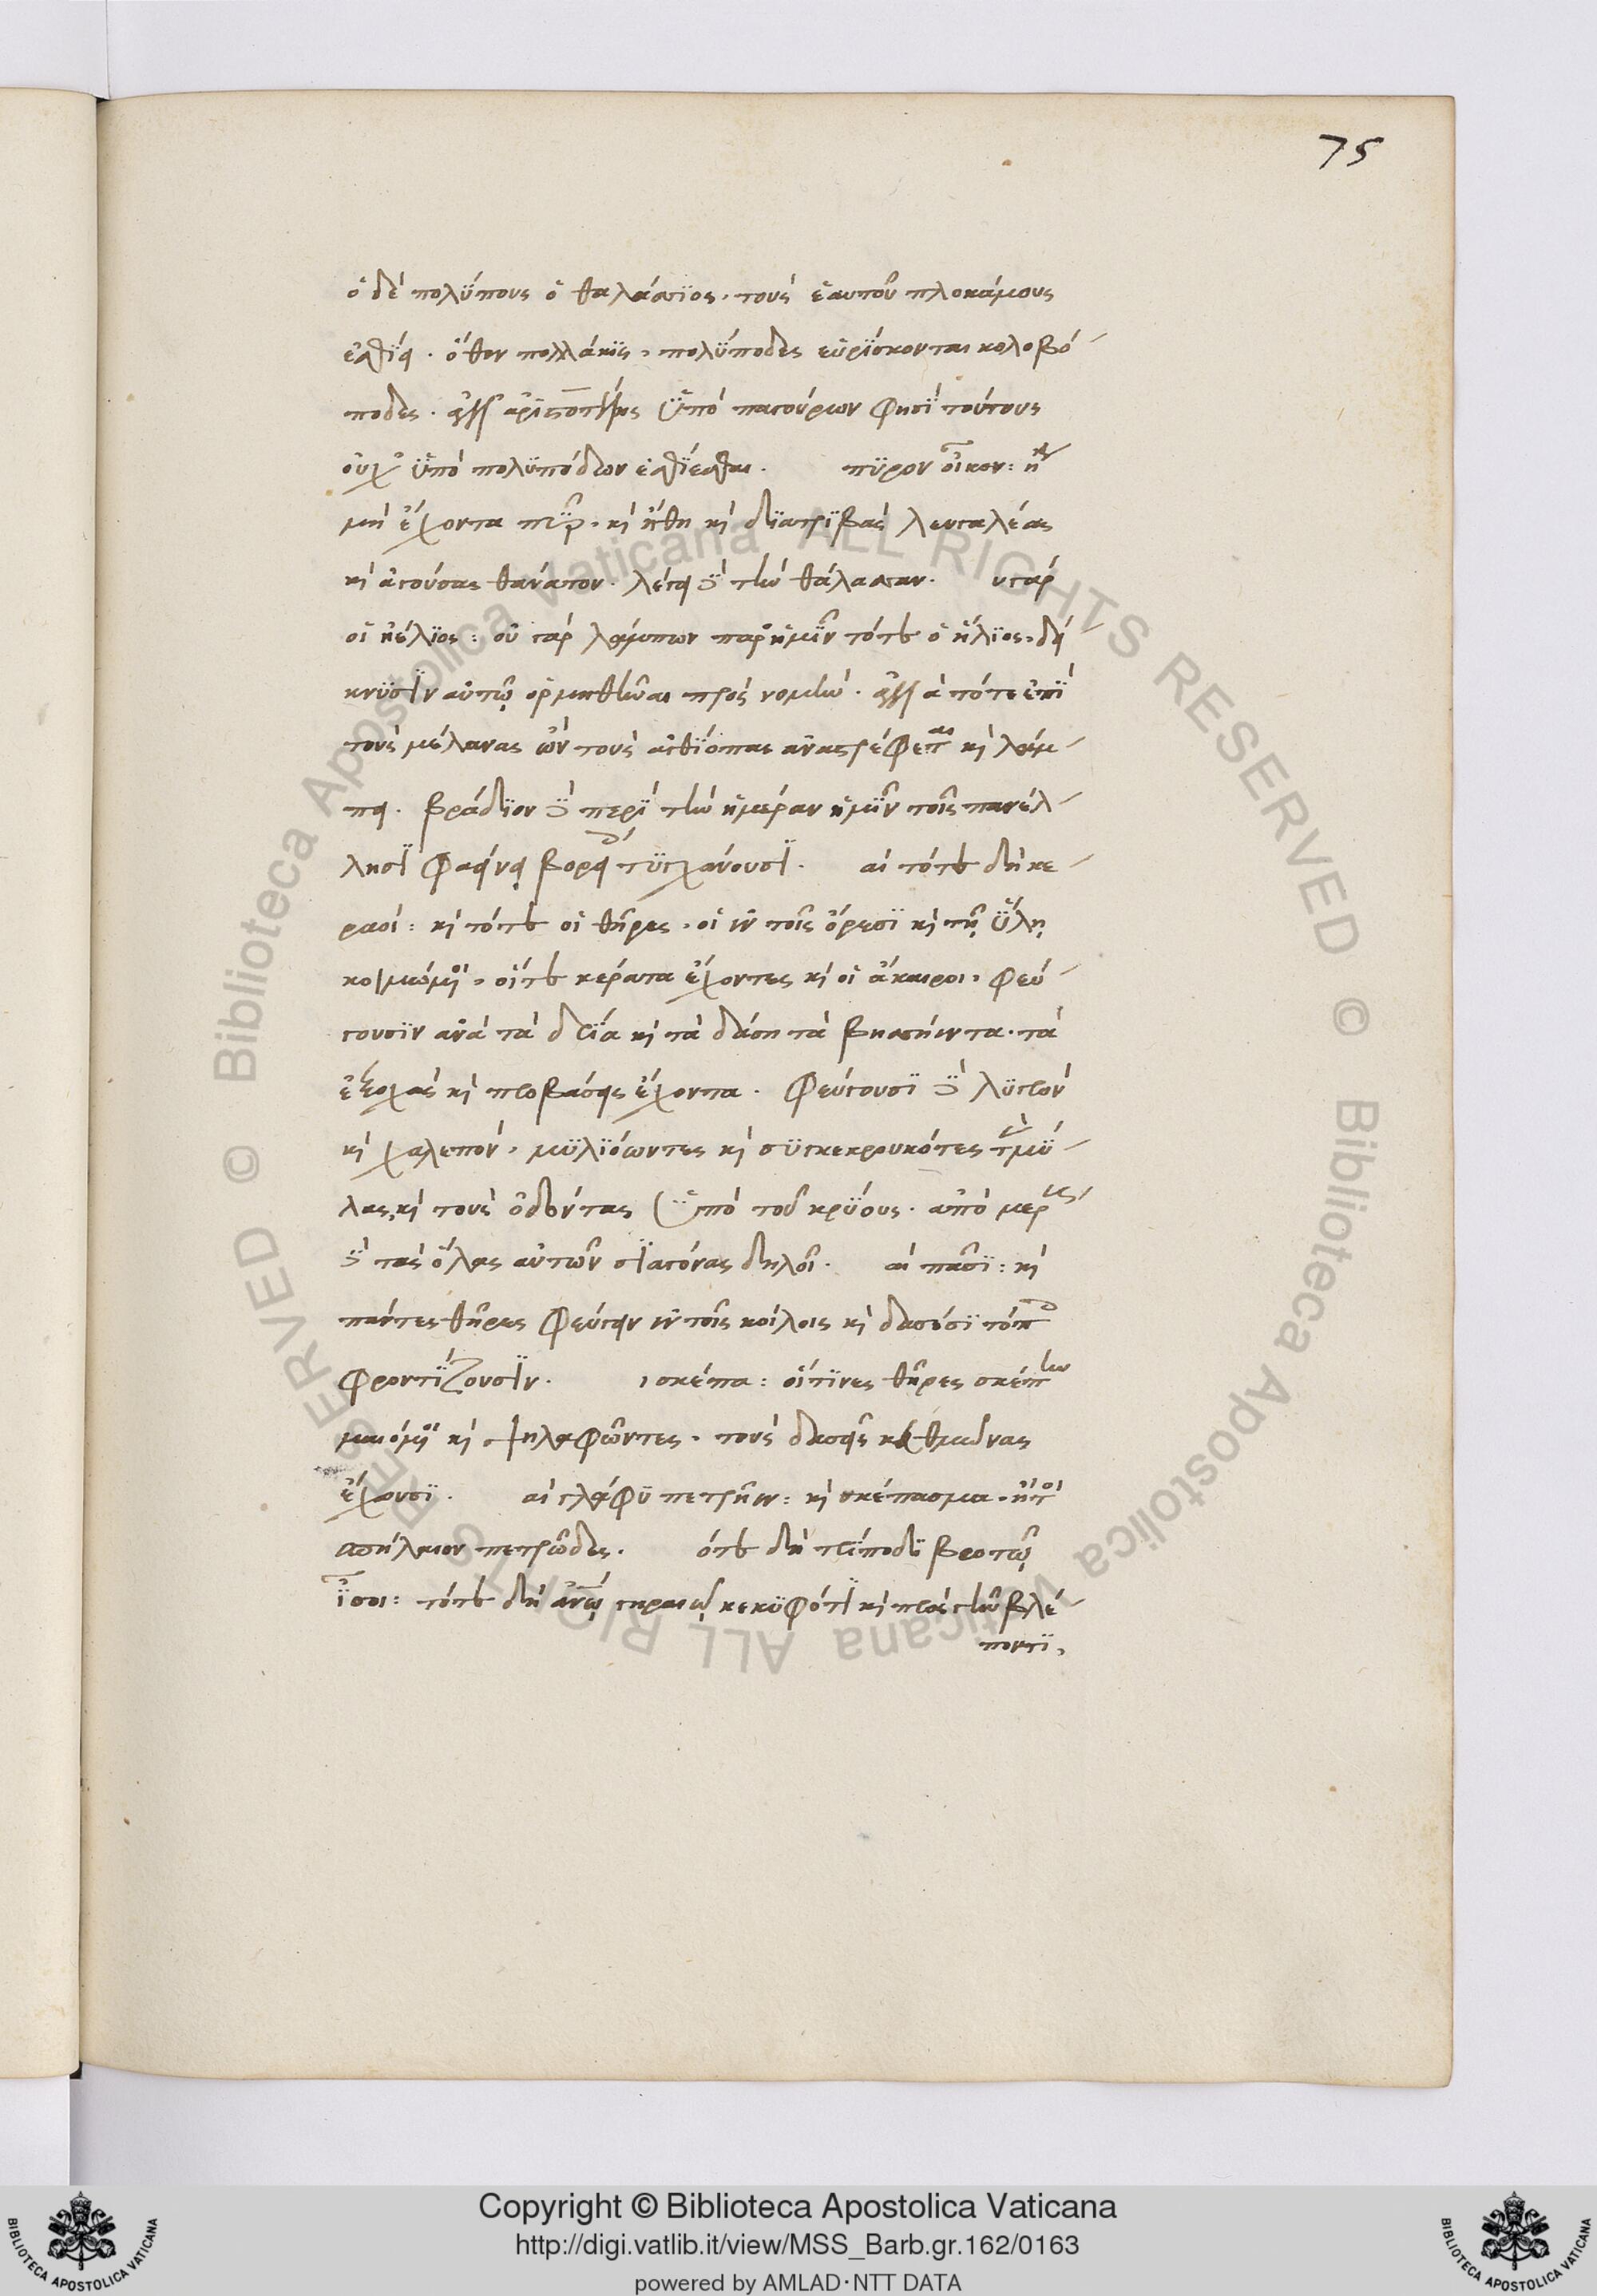 ὁ δὲ πολύπους ὁ θαλάσσιος, τοὺς ἑαυτοῦ πλοκάμους
ἐσθίει. ὅθεν πολλάκις, πολύποδες εὑρίσκονται κολοβό-
ποδες. ἀλλ' ἀριστοτέλης ὑπὸ παγούρων φησὶ τούτους
οὐχ' ὑπὸ πολυπόδων ἐσθίεσθαι. πυρον οἶκον:
μὴ ἔχοντα πῦρ. καὶ ἤθη καὶ διατριβὰς λευγαλέας
καὶ ἀγούσας θάνατον. λέγει δὲ τὴν θάλασσαν. υ γάρ
οἱ ἠέλιος: οὐ γὰρ λάμπων παρ' ἡμῖν τότε ὁ ἥλιος, δεί-
κνυσιν αὐτῷ ὁρμηθῆναι πρὸς νομήν. ἀλλὰ τότε ἐπὶ
τοὺς μέλανας ὢν τοὺς αἰθίοπας ἀναστρέφεται καὶ λάμ-
πει. βράδιον δὲ περὶ τὴν ἡμέραν ἡμῖν τοῖς πανέλ-
λησι φαείνει βορείοις τυγχάνουσι. αὶ τότε δὴ κε-
ραοί: καὶ τότε οἱ θῆρες, οἱ ἐν τοῖς ὄρεσι καὶ τῇ ὕλῃ
κοιμώμενοι, οἵτε κέρατα ἔχοντες καὶ οἱ ἄκαιροι, φεύ-
γουσιν ἀνὰ τὰ δρία καὶ τὰ δάση τὰ βησσήεντα. τὰ
ἐξοχὰς καὶ προβάσεις ἔχοντα. φεύγουσι δὲ λυγρὸν
καὶ χαλεπὸν, μυλιόωντες καὶ συγκεκρουκότες τὰς μύ-
λας, καὶ τοὺς ὀδόντας ὑπὸ τοῦ κρύους. ἀπὸ μέρους
δὲ τὰς ὅλας αὐτῶν σιαγόνας δηλοῖ. αὶ πᾶσι: καὶ
πάντες θῆρες φεύγειν ἐν τοῖς κοίλοις καὶ δασέσι τόποις
φροντίζουσιν. ι σκέπα: οἵτινες θῆρες σκέπην
μαιόμενοι καὶ ψηλαφῶντες, τοὺς δασεῖς κευθμῶνας
ἔχουσι. αὶ γλάφυ πετρῆεν: καὶ σκέπασμα. ἤτοι
σπήλαιον πετρῶδες. ότε δὴ τρίποδι βροτῷ
ἶσοι: τότε δὴ ἀνῷ γηραιῷ κεκυφότι καὶ πρὸς γῆν βλέ-
ποντι,
75
Copyright © Biblioteca Apostolica Vaticana
http://digi.vatlib.it/view/MSS_Barb.gr.162/0163
powered by AMLAD·NTT DATA
© Biblioteca Apostolica Vaticana ALL RIGHTS RESERVED
© Biblioteca Apostolica Vaticana ALL RIGHTS RESERVED
BIBLIOTECA APOSTOLICA VATICANA
BIBLIOTECA APOSTOLICA VATICANA